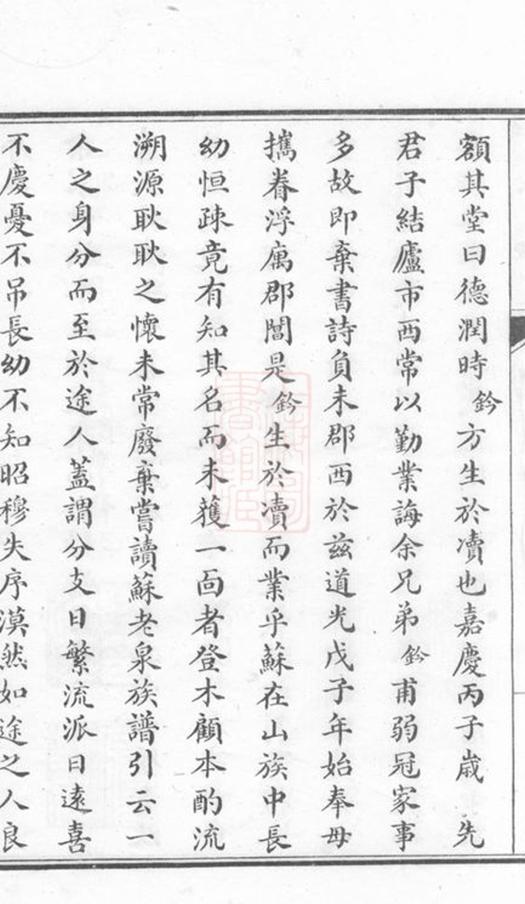 額其堂曰德潤時鈐方生於凟也嘉慶丙子歲先
君子結廬市西常以勤業誨余兄弟鈐甫弱冠家事
多故即棄書詩負耒郡西於兹道光戊子年始奉母
攜眷浮寓郡閶是鈐生於凟而業乎蘇在山族中長
幼恒疎竟有知其名而未獲一面者登木顧本酌流
溯源耿耿之懷未常廢棄嘗讀蘇老泉族譜引云一
人之身分而至於途人蓋謂分支日繁流派日遠喜
不慶憂不吊長幼不知昭穆失序漠然如途之人良